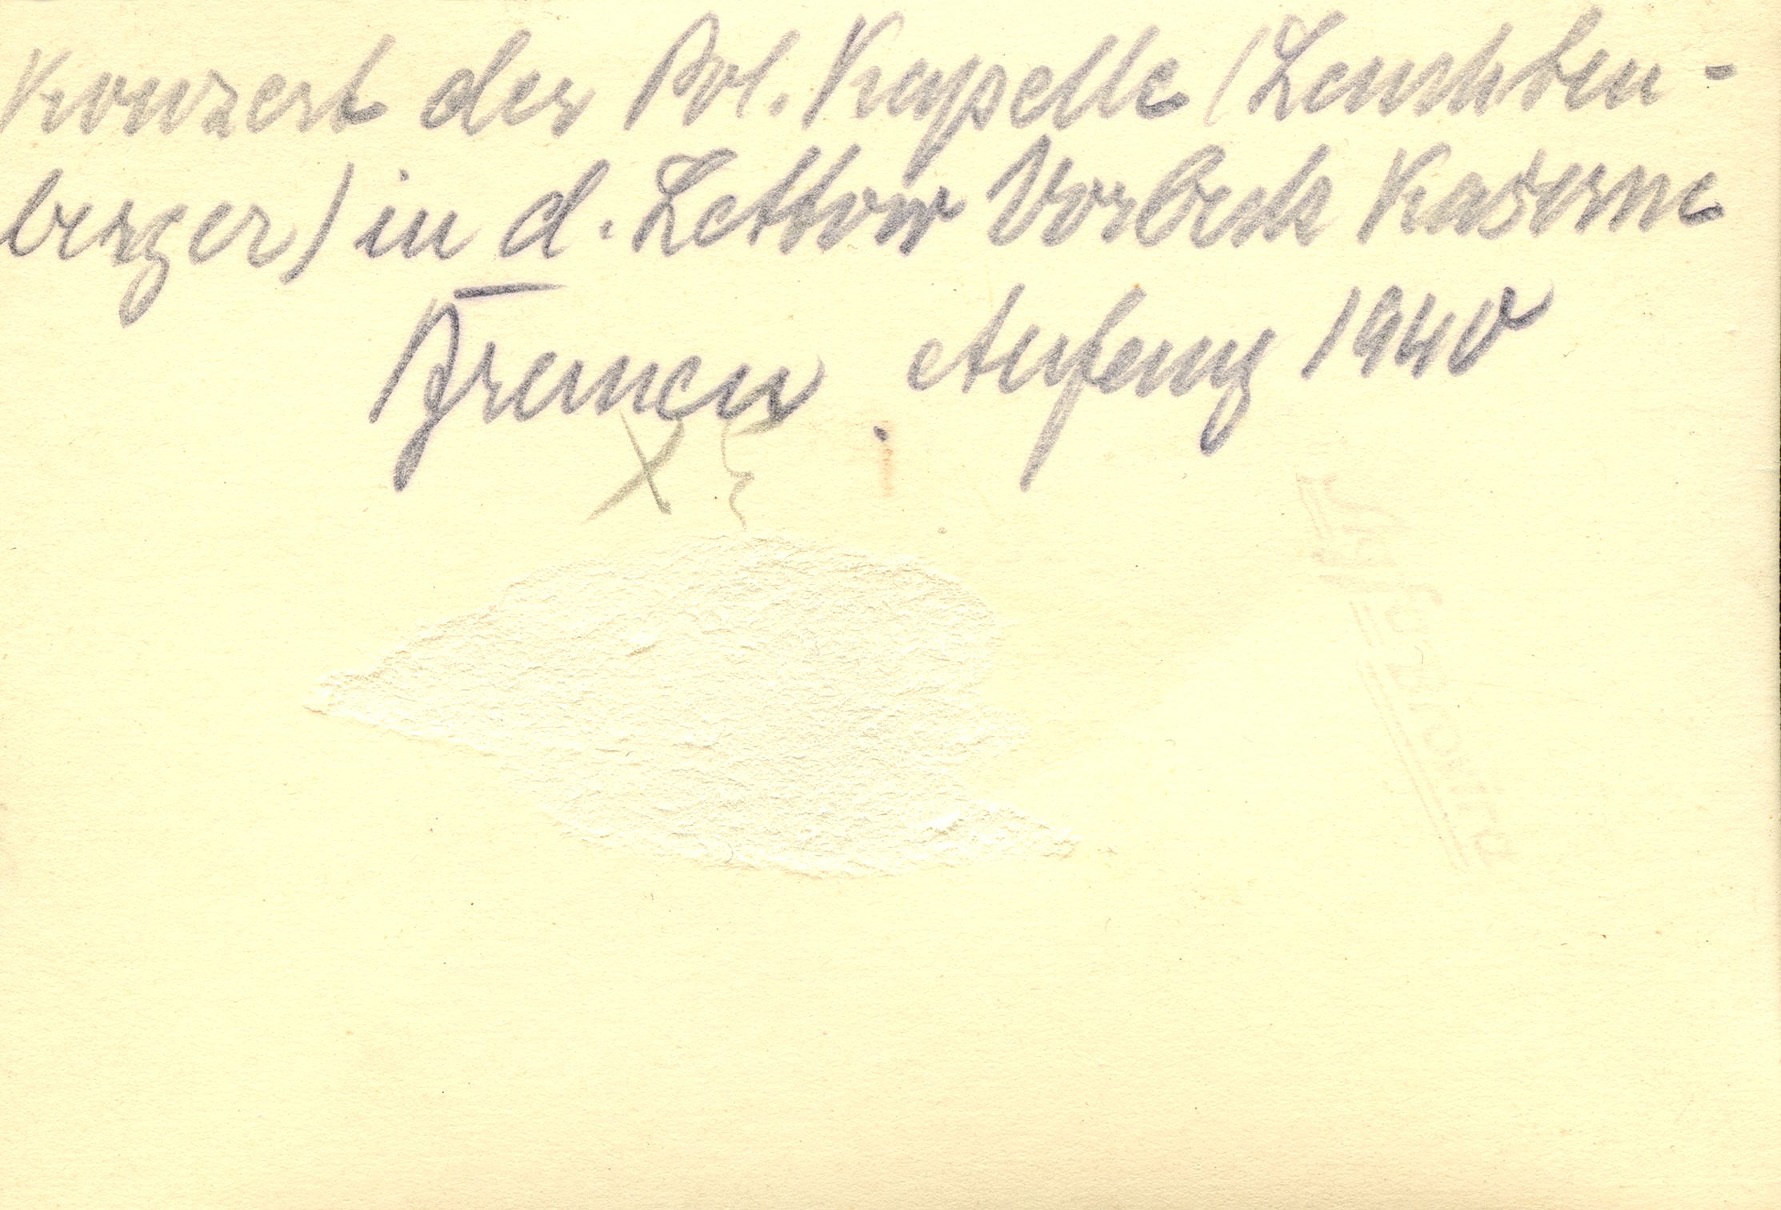 Konzert der Pol. Kapelle (Leuchten-
berger) in d. Lettow Vorbeck Kaserne
Bremen. Anfang 1940